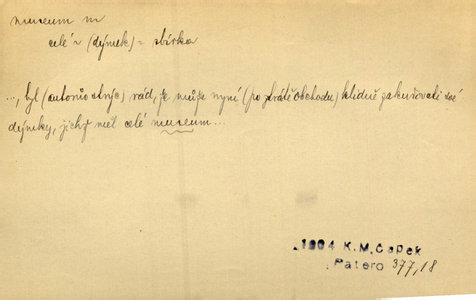 museum n
celé ~ (dýmek) = sbírka
..., byl (antonio strýc) rád, že může nyní (po ztrátě obchodu) klidně zakuřovati své
dýmky, jichž měl celé museum...
1904 K.M.Čapek
Patero 377,18